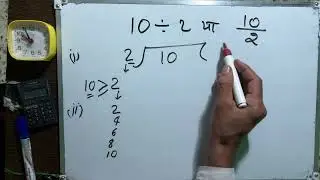 10 ÷ 2 या 10/2
(i) 2 √10 (
10 ≥ 2
(ii) 2
4
6
8
10